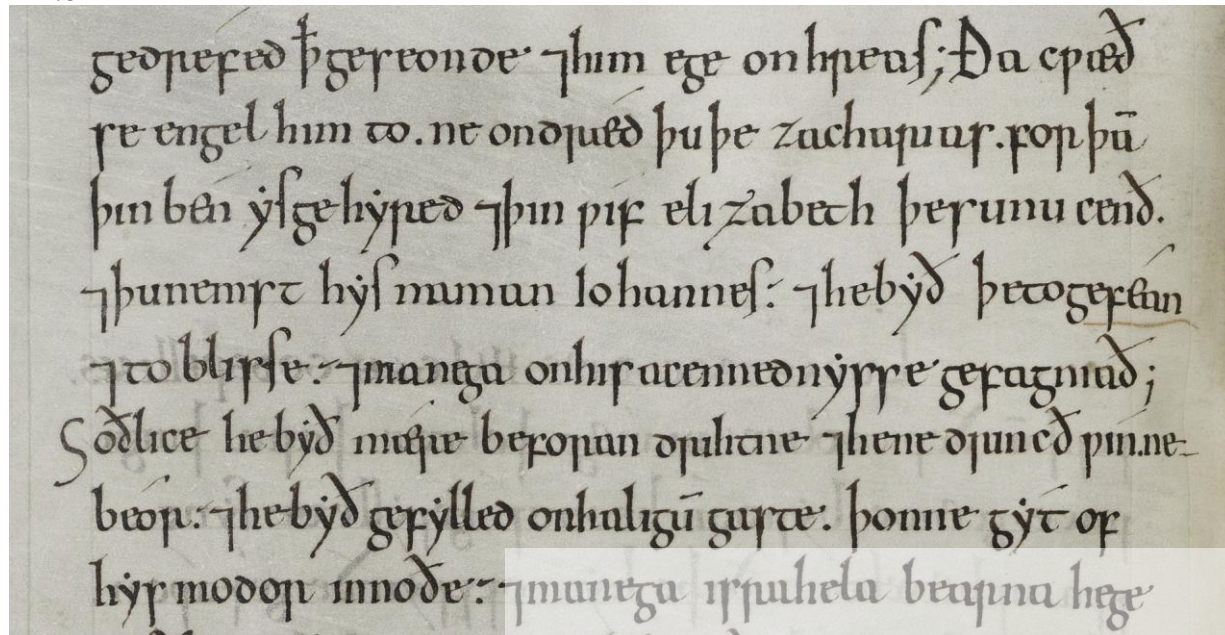 gedrefed ꝥ geseonde ⁊ him ege onhreas; Ða cƿæð
se engel him to. ne ondræd þu þe zacharias. forþā
þin bén ẏs gehẏred ⁊ þin ƿif elizabeth þe sunu cenð.
⁊ þu nemst hẏs naman Iohannes: ⁊ he bẏð þe to geféan
⁊ to blisse: ⁊ manega on his acennednẏsse gefagniað;
Soðlice he bẏð mære beforan drihtne ⁊ he ne drincð ƿin. ne
beór: ⁊ he bẏð gefẏlled on haligū gaste. þonne gẏt of
hẏs modor innoðe: ⁊ manega israhela bearna he ge